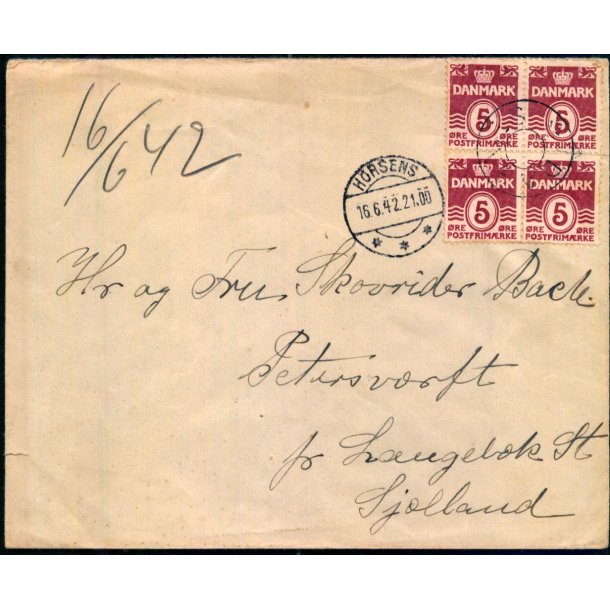 16/6 42
DANMARK DANMARK
5 5
ØRE ØRE ØRE ØRE
POSTFRIMÆRKE POSTFRIMÆRKE
DANMARK DANMARK
5 5
ØRE ØRE ØRE ØRE
POSTFRIMÆRKE POSTFRIMÆRKE
HORSENS
16.6.42.21.00
Hr og Fru Skovrider Back.
Petersværft
pr Langebæk St
Sjælland